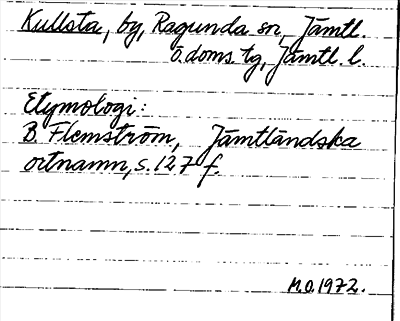 Kullsta, by, Ragunda sn, Jämtl.
ö. doms. tg, Jämtl. l.
Etymologi:
B. Flemström, Jämtländska
ortnamn, s. 127 f.
M.O. 1972.